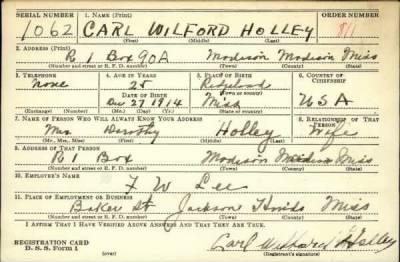 SERIAL NUMBER 1. NAME (Print) ORDER NUMBER
1062 CARL WILFORD HOLLEY 811
(First) (Middle) (Last)
2. ADDRESS (Print)
R 1 Box 90A Madison Madison Miss
(Number and street or R. F. D. number) (Town) (County) (State)
3. TELEPHONE 4. AGE IN YEARS 5. PLACE OF BIRTH 6. COUNTRY OF CITIZENSHIP
None 25 Ridgeland
DATE OF BIRTH (Town or county)
Dec 27 1914 Miss USA
(Exchange) (Number) (Mo.) (Day) (Yr.) (State or country)
7. NAME OF PERSON WHO WILL ALWAYS KNOW YOUR ADDRESS 8. RELATIONSHIP OF THAT PERSON
Mrs Dorothy Holley Wife
(Mr., Mrs., Miss) (First) (Middle) (Last)
9. ADDRESS OF THAT PERSON
R 1 Box Madison Madison Miss
(Number and street or R. F. D. number) (Town) (County) (State)
10. EMPLOYER'S NAME
F W Lee
11. PLACE OF EMPLOYMENT OR BUSINESS
Baker St Jackson Hinds Miss
(Number and street or R. F. D. number) (Town) (County) (State)
I AFFIRM THAT I HAVE VERIFIED ABOVE ANSWERS AND THAT THEY ARE TRUE.
REGISTRATION CARD
D. S. S. Form 1 (over) Carl Wilford Holley
(Registrant's signature)